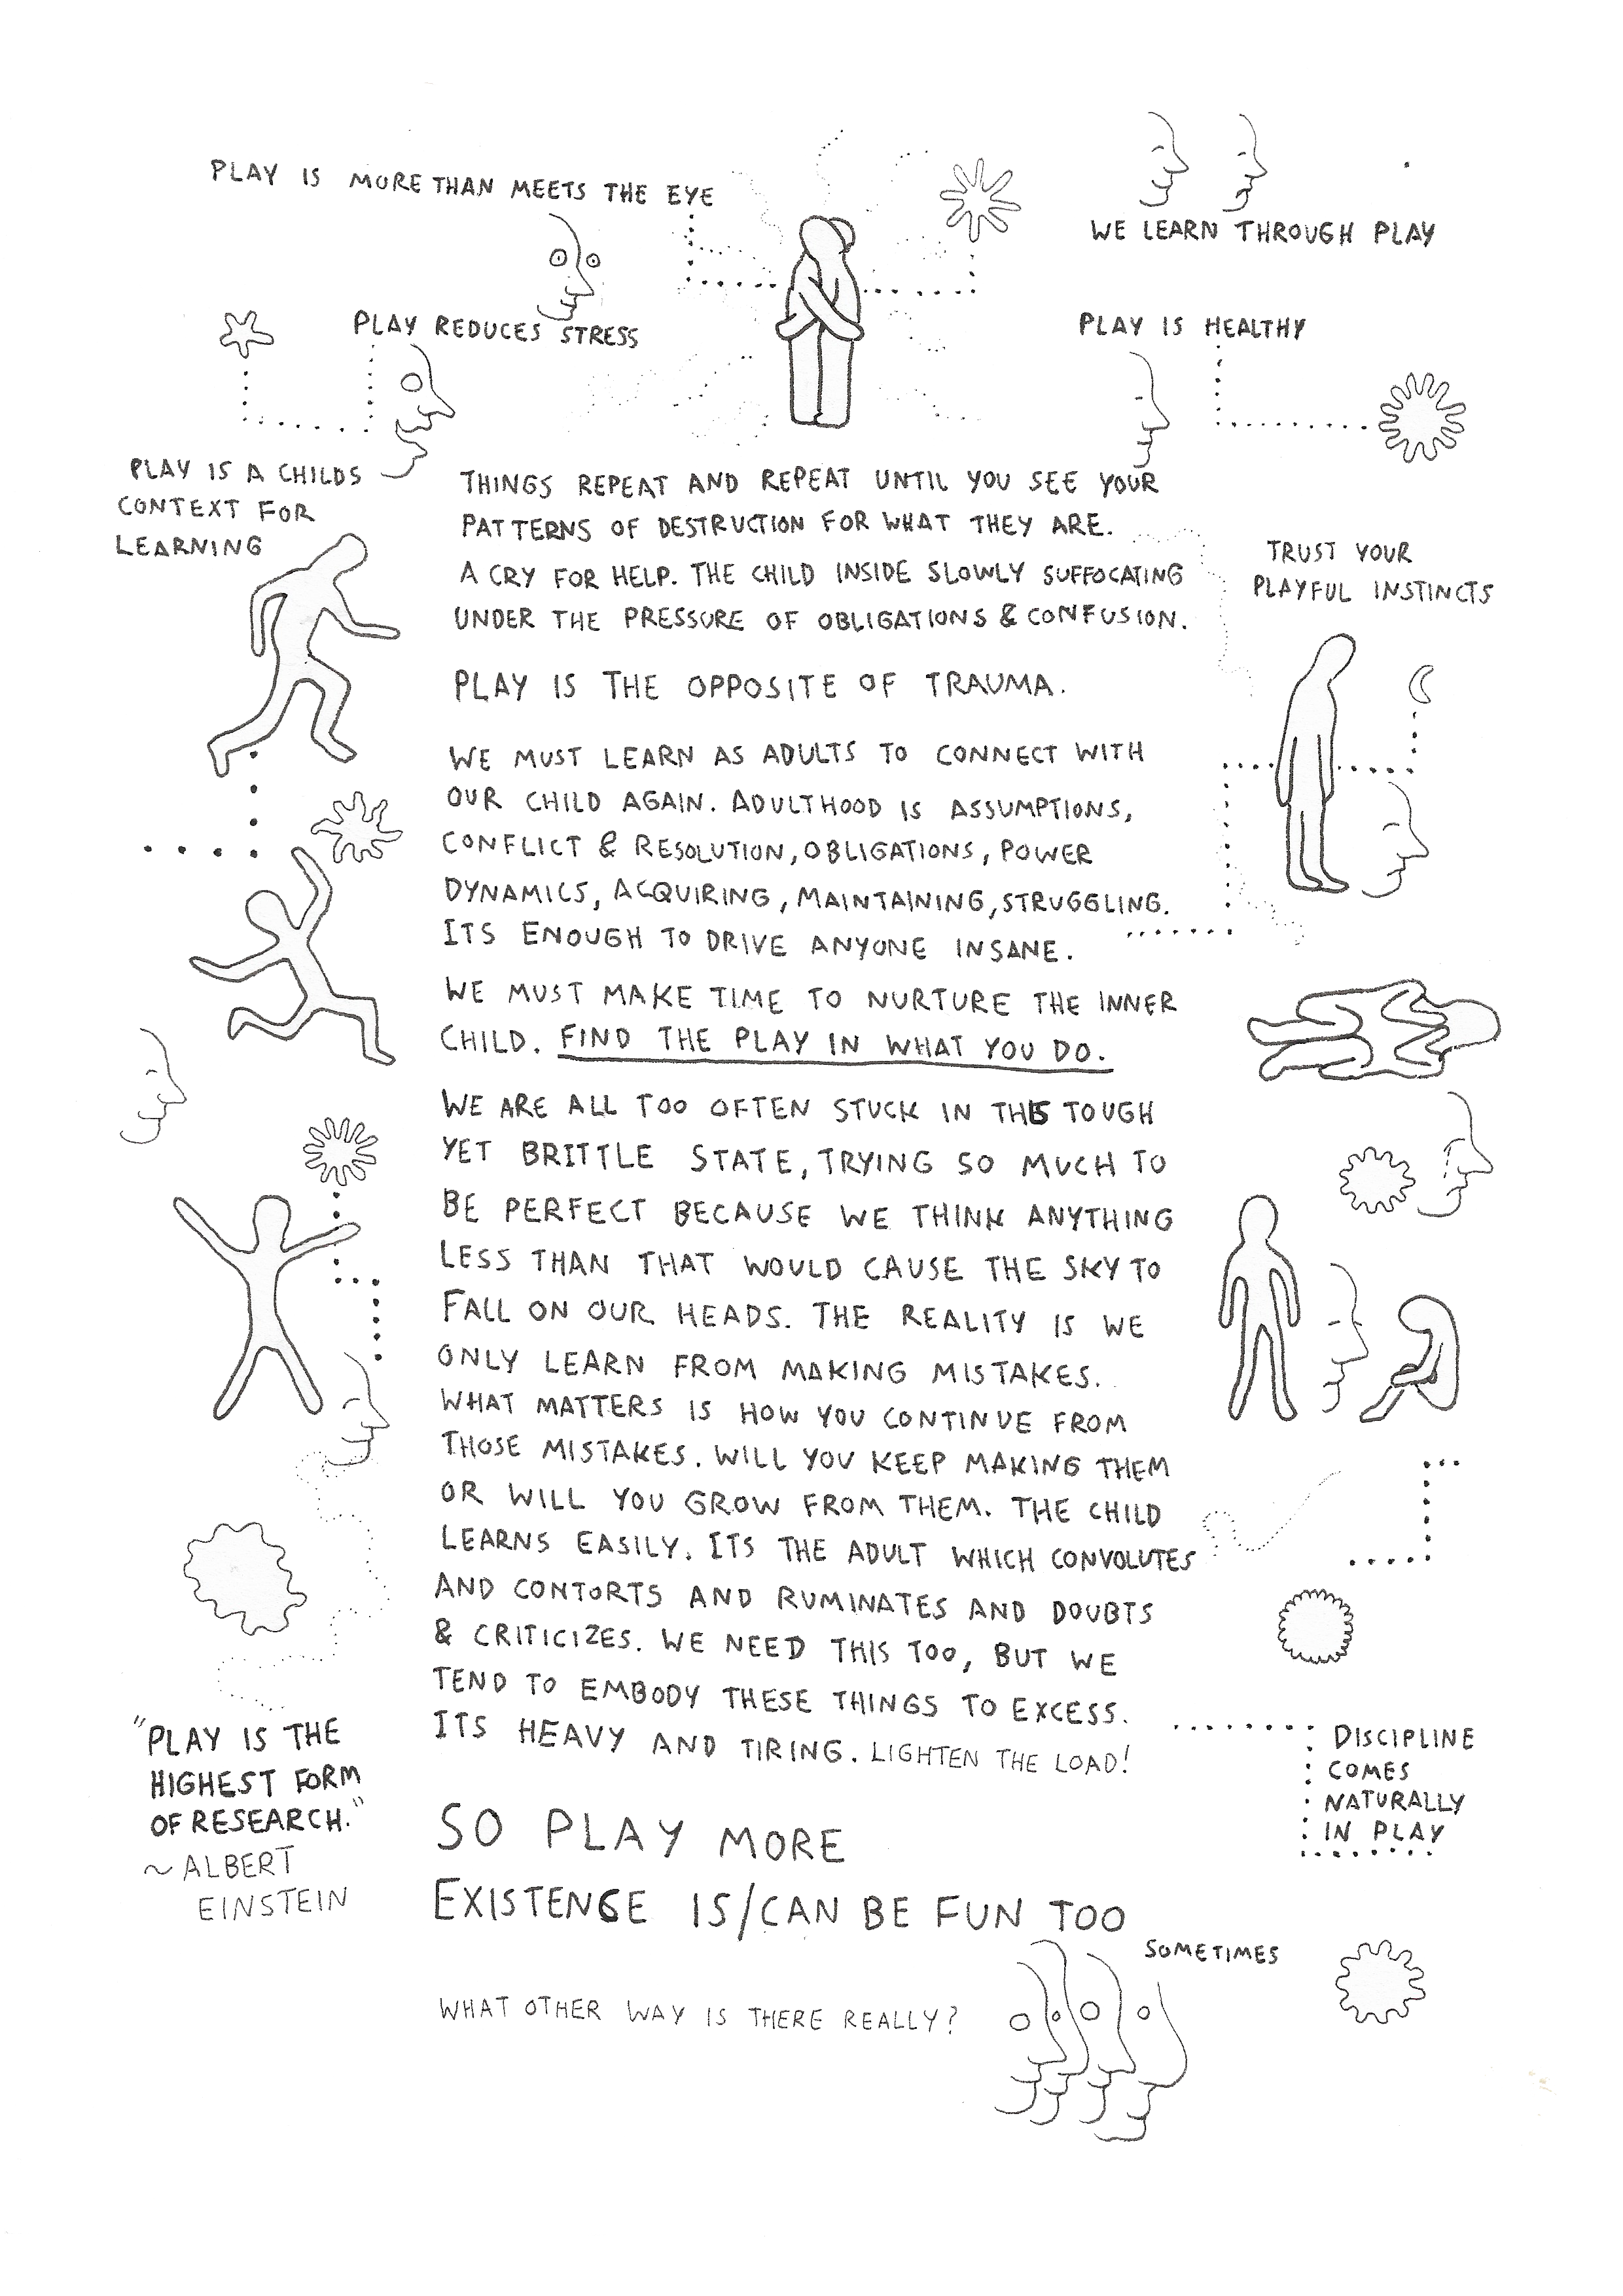 PLAY IS MORE THAN MEETS THE EYE
WE LEARN THROUGH PLAY
PLAY REDUCES STRESS
PLAY IS HEALTHY
PLAY IS A CHILDS
CONTEXT FOR
LEARNING
THINGS REPEAT AND REPEAT UNTIL YOU SEE YOUR
PATTERNS OF DESTRUCTION FOR WHAT THEY ARE.
A CRY FOR HELP. THE CHILD INSIDE SLOWLY SUFFOCATING
UNDER THE PRESSURE OF OBLIGATIONS & CONFUSION.
TRUST YOUR
PLAYFUL INSTINCTS
PLAY IS THE OPPOSITE OF TRAUMA.
WE MUST LEARN AS ADULTS TO CONNECT WITH
OUR CHILD AGAIN. ADULTHOOD IS ASSUMPTIONS,
CONFLICT & RESOLUTION, OBLIGATIONS, POWER
DYNAMICS, ACQUIRING, MAINTAINING, STRUGGLING.
ITS ENOUGH TO DRIVE ANYONE INSANE.
WE MUST MAKE TIME TO NURTURE THE INNER
CHILD. FIND THE PLAY IN WHAT YOU DO.
WE ARE ALL TOO OFTEN STUCK IN THIS TOUGH
YET BRITTLE STATE, TRYING SO MUCH TO
BE PERFECT BECAUSE WE THINK ANYTHING
LESS THAN THAT WOULD CAUSE THE SKY TO
FALL ON OUR HEADS. THE REALITY IS WE
ONLY LEARN FROM MAKING MISTAKES.
WHAT MATTERS IS HOW YOU CONTINUE FROM
THOSE MISTAKES. WILL YOU KEEP MAKING THEM
OR WILL YOU GROW FROM THEM. THE CHILD
LEARNS EASILY. ITS THE ADULT WHICH CONVOLUTES
AND CONTORTS AND RUMINATES AND DOUBTS
& CRITICIZES. WE NEED THIS TOO, BUT WE
TEND TO EMBODY THESE THINGS TO EXCESS.
ITS HEAVY AND TIRING. LIGHTEN THE LOAD!
"PLAY IS THE
HIGHEST FORM
OF RESEARCH."
~ ALBERT
EINSTEIN
DISCIPLINE
COMES
NATURALLY
IN PLAY
SO PLAY MORE
EXISTENCE IS/CAN BE FUN TOO
SOMETIMES
WHAT OTHER WAY IS THERE REALLY?